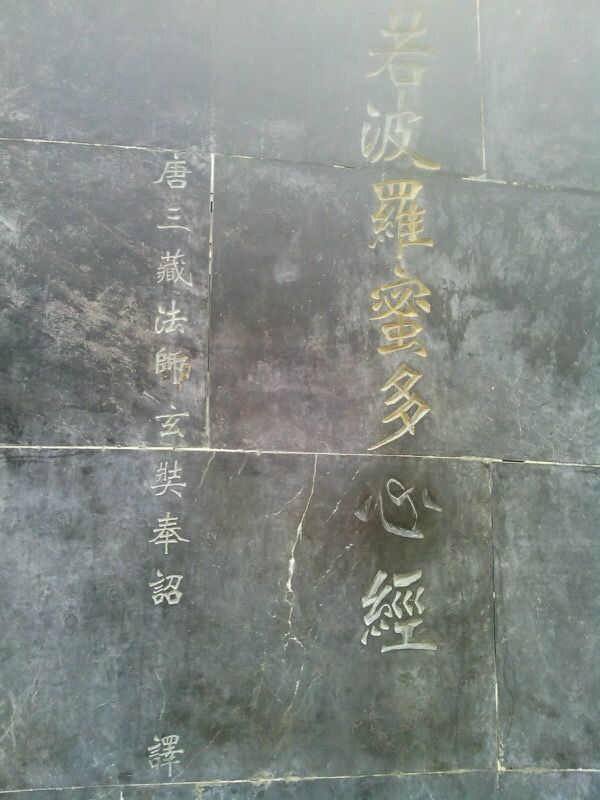 若波羅蜜多心經
唐三藏法師玄奘奉詔譯